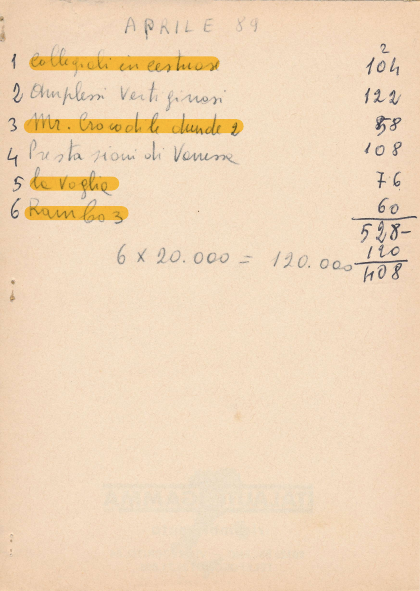 APRILE 89
1 Collegiali incestuose 104
2 Amplessi Vertiginosi 122
3 Mr. Crocodile dunde 2 58
4 Prestazioni di Vanessa 108
5 la Voglia 76
6 Rambo 3 60
528-
6 x 20.000 = 120.000 120
408